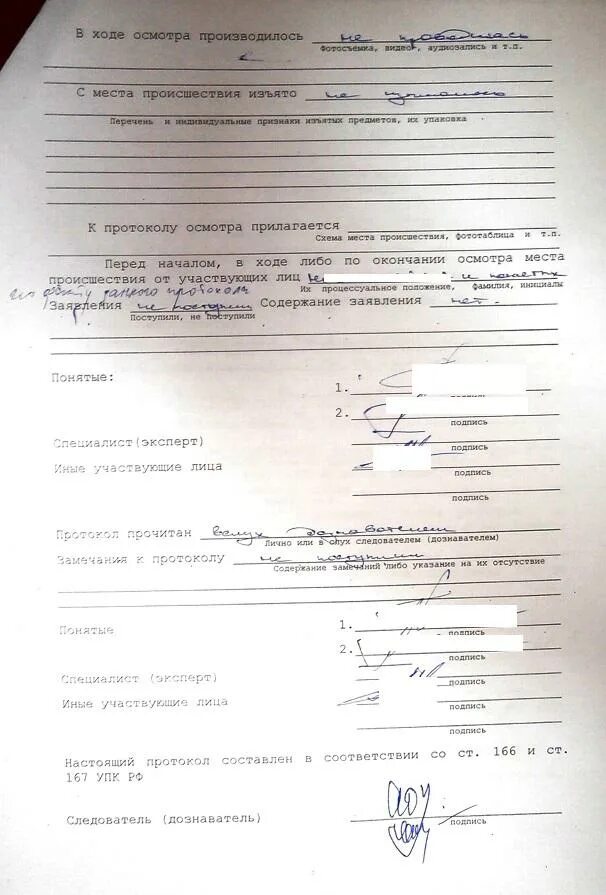 В ходе осмотра производилось не проводилась
Фотосъемка, видео, аудиозапись и т.п.
С места происшествия изъято не изымалось
Перечень и индивидуальные признаки изъятых предметов, их упаковка
К протоколу осмотра прилагается
Схема места происшествия, фототаблица и т.п.
Перед началом, в ходе либо по окончании осмотра места
происшествия от участвующих лиц и понятых
Их процессуальное положение, фамилия, инициалы
данного протокола
Заявления не поступили Содержание заявления нет.
Поступили, не поступили
Понятые:
1.
подпись
2.
подпись
Специалист(эксперт)
подпись
Иные участвующие лица
подпись
подпись
Протокол прочитан вслух дознавателем
Лично или в слух следователем (дознавателем)
Замечания к протоколу не поступили
Содержание замечаний либо указание на их отсутствие
Понятые
1.
подпись
2.
подпись
Специалист (эксперт)
подпись
Иные участвующие лица
подпись
подпись
Настоящий протокол составлен в соответствии со ст. 166 и ст.
167 УПК РФ
Следователь (дознаватель)
подпись